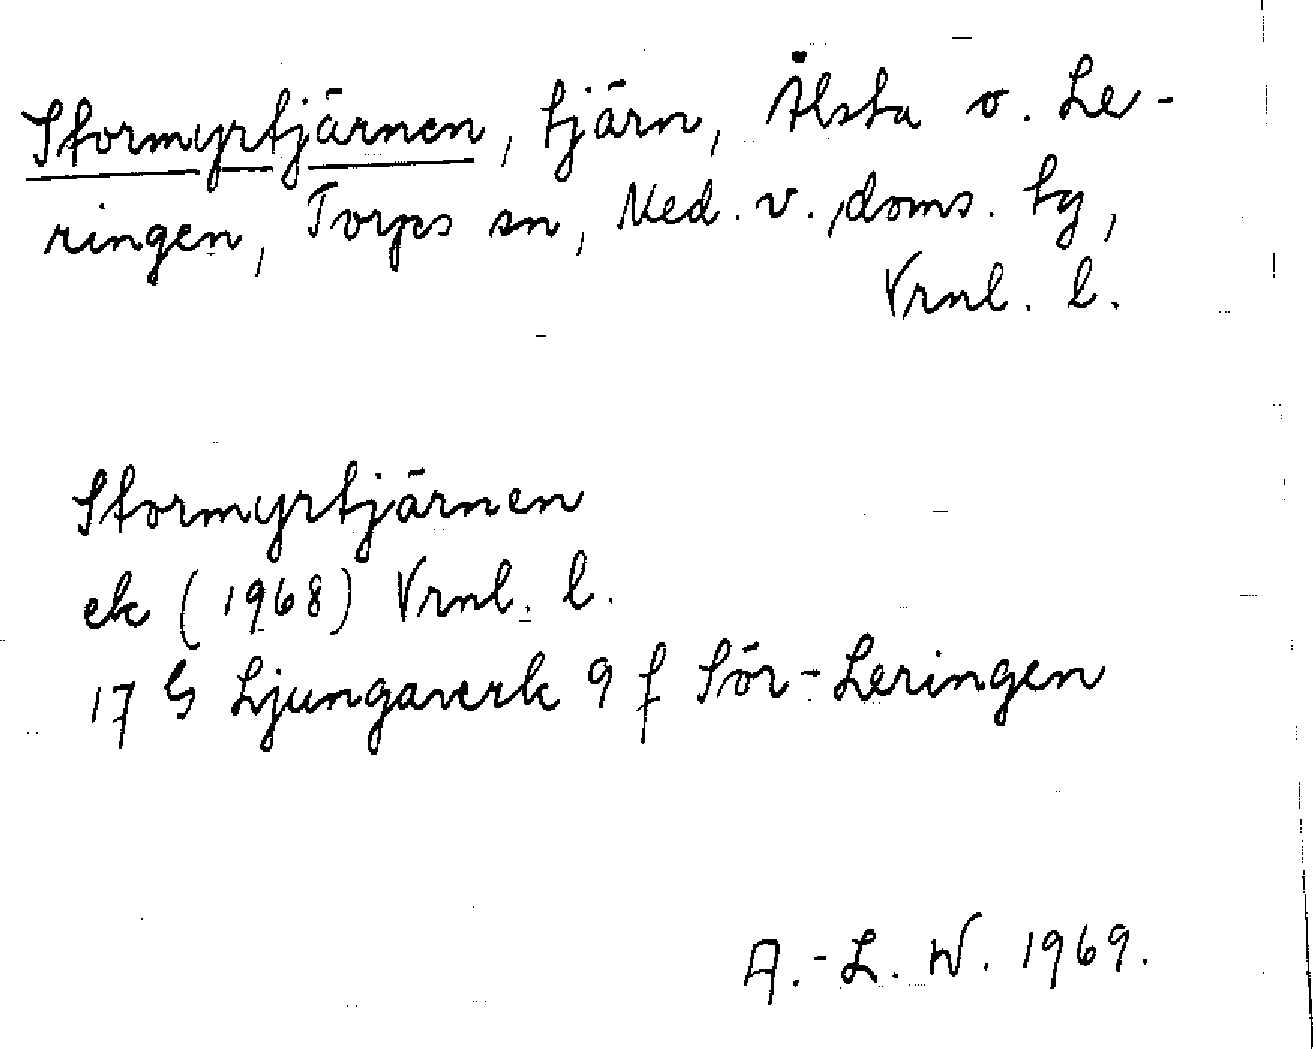 Stormyrtjärnen, tjärn, Ålsta o. Le-
ringen, Torps sn, Med. v. doms. tg,
Vrnl. l.
Stormyrtjärnen
ek (1968) Vrnl. l.
17 G Ljungaverk 9 f Sör-Leringen
A.-L. W. 1969.